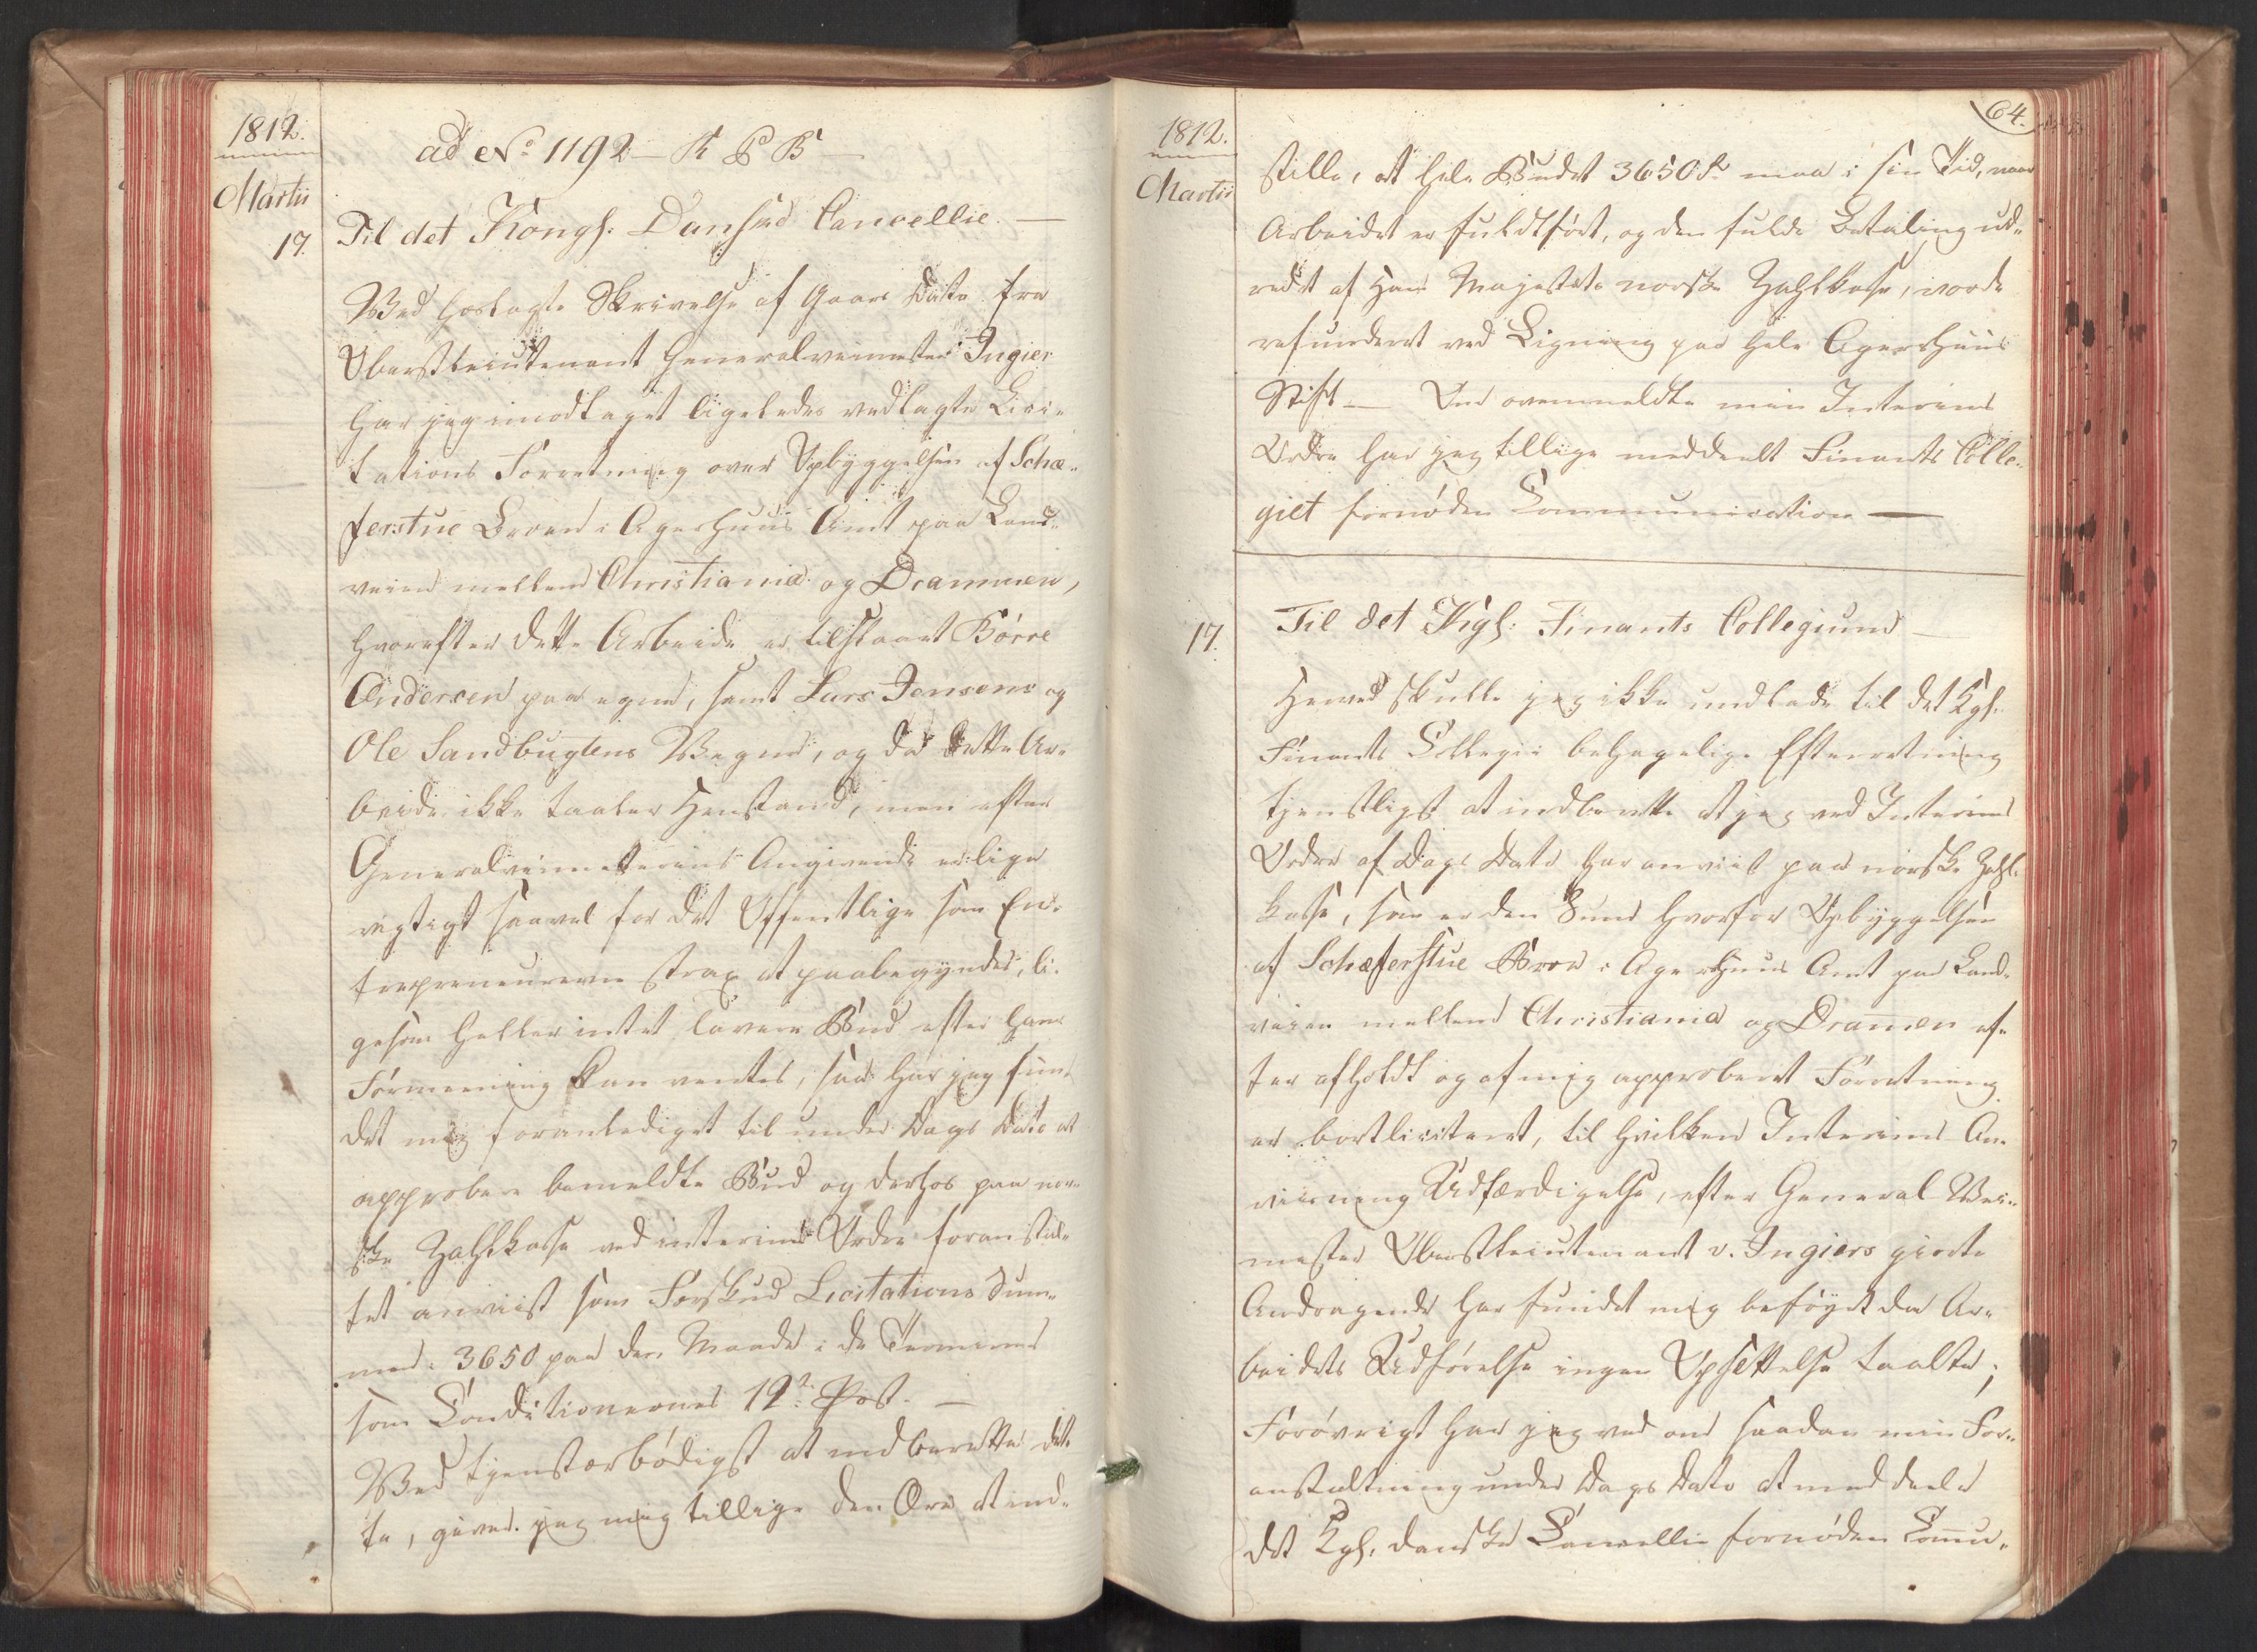 1812.
Martii
17.
ad No 1192 - K P B -
Til det Kongl. Danske Cancellie. -
Med hoslagte Skrivelse af Gaars Dato fra
Oberstleiutenant Generalveimester Ingier
har jeg imodtaget ligeledes vedlagte Lici-
tations Forretning over Opbyggelsen af Schæ-
ferstue Broen i Agershuus Amt paa Land-
veien mellem Christiania og Drammen,
hvorefter dette Arbeide er tilslaaet Börre
Andersen paa egne, samt Lars Jensens og
Ole Sandbugtens Vegne, og da dette Ar-
beide ikke taaler Henstand, men efter
Generalveimesterens Angivende er lige
vigtigt saavel for det Offentlige som En-
trepreneurerne strax at paabegyndes, li-
gesom heller intet lavere Bud efter hans
Formeening kan ventes, saa har jeg fun-
det mig foranlediget til under Dags Dato at
approbere bemeldte Bud og derhos paa nor-
ske Zahlkasse ved interims Ordre foranstal-
tet anviist som Forskud Licitations Sum-
men 3650 paa den Maade i de Terminer
som Conditionernes 12te Post. -
Ved tjenstærbödigst at indberette det-
te, giver jeg mig tillige den Ære at ind-
64.
1812.
Martii
stille, at hele Budet 3650 rd maa i sin Tid, naar
Arbeidet er fuldfört, og den fulde Betaling ud-
redet af Hans Majestæts norske Zahlkasse, vorde
refunderet ved Ligning paa hele Agershuus
Stift - Om ovenmeldte min Interims
Ordre har jeg tillige meddeelt Finants Colle-
giet fornöden Communication -
17.
Til det Kgl: Finants Collegium -
Herved skulle jeg ikke undlade til det Kgl.
Finants Collegii behagelige Efterretning
tjenstligst at indberette at jeg ved Interims
Ordre af Dags Dato har anviist paa norske Zahl-
kasse, som er den Sum hvorfor Opbyggelsen
af Schæferstue Broe i Agershuus Amt paa Land-
veien mellem Christiania og Dramen ef-
ter afholdt og af mig approberet Forretning
er bortliciteret, til hvilken Interims An-
viisning Udfærdigelse, efter General Vei-
mester Oberstleiutenant v. Ingiers giorte
Andragende har fundet mig beföyet da Ar-
beidets Udförelse ingen Opsettelse taalte;
Forövrigt har jeg ved om saadan min For-
anstaltning under Dags Dato at meddeele
det Kgl. danske Cancellie fornöden Comu-